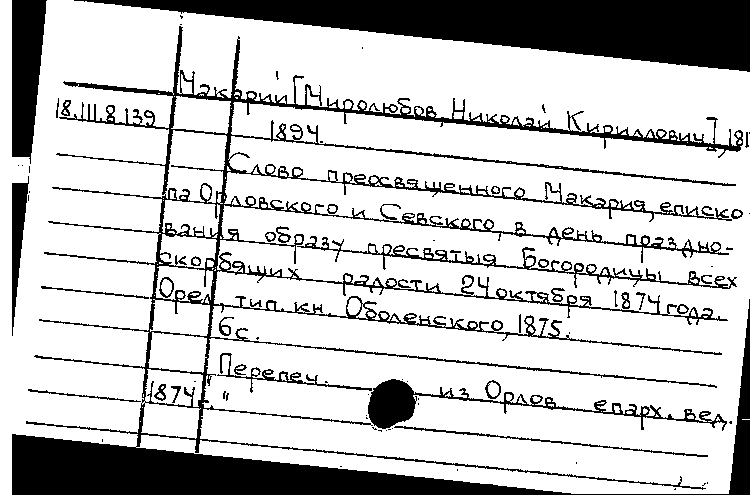 Макарий [Миролюбов, Николай Кириллович], 181
18.III.8.139
1894.
Слово преосвященного Макария, еписко-
па Орловского и Севского, в день праздно-
вания образу пресвятыя Богородицы всех
скорбящих радости 24 октября 1874 года.
Орел, тип. кн. Оболенского, 1875.
6с.
Перепеч. из Орлов. епарх. вед.
1874 г. "